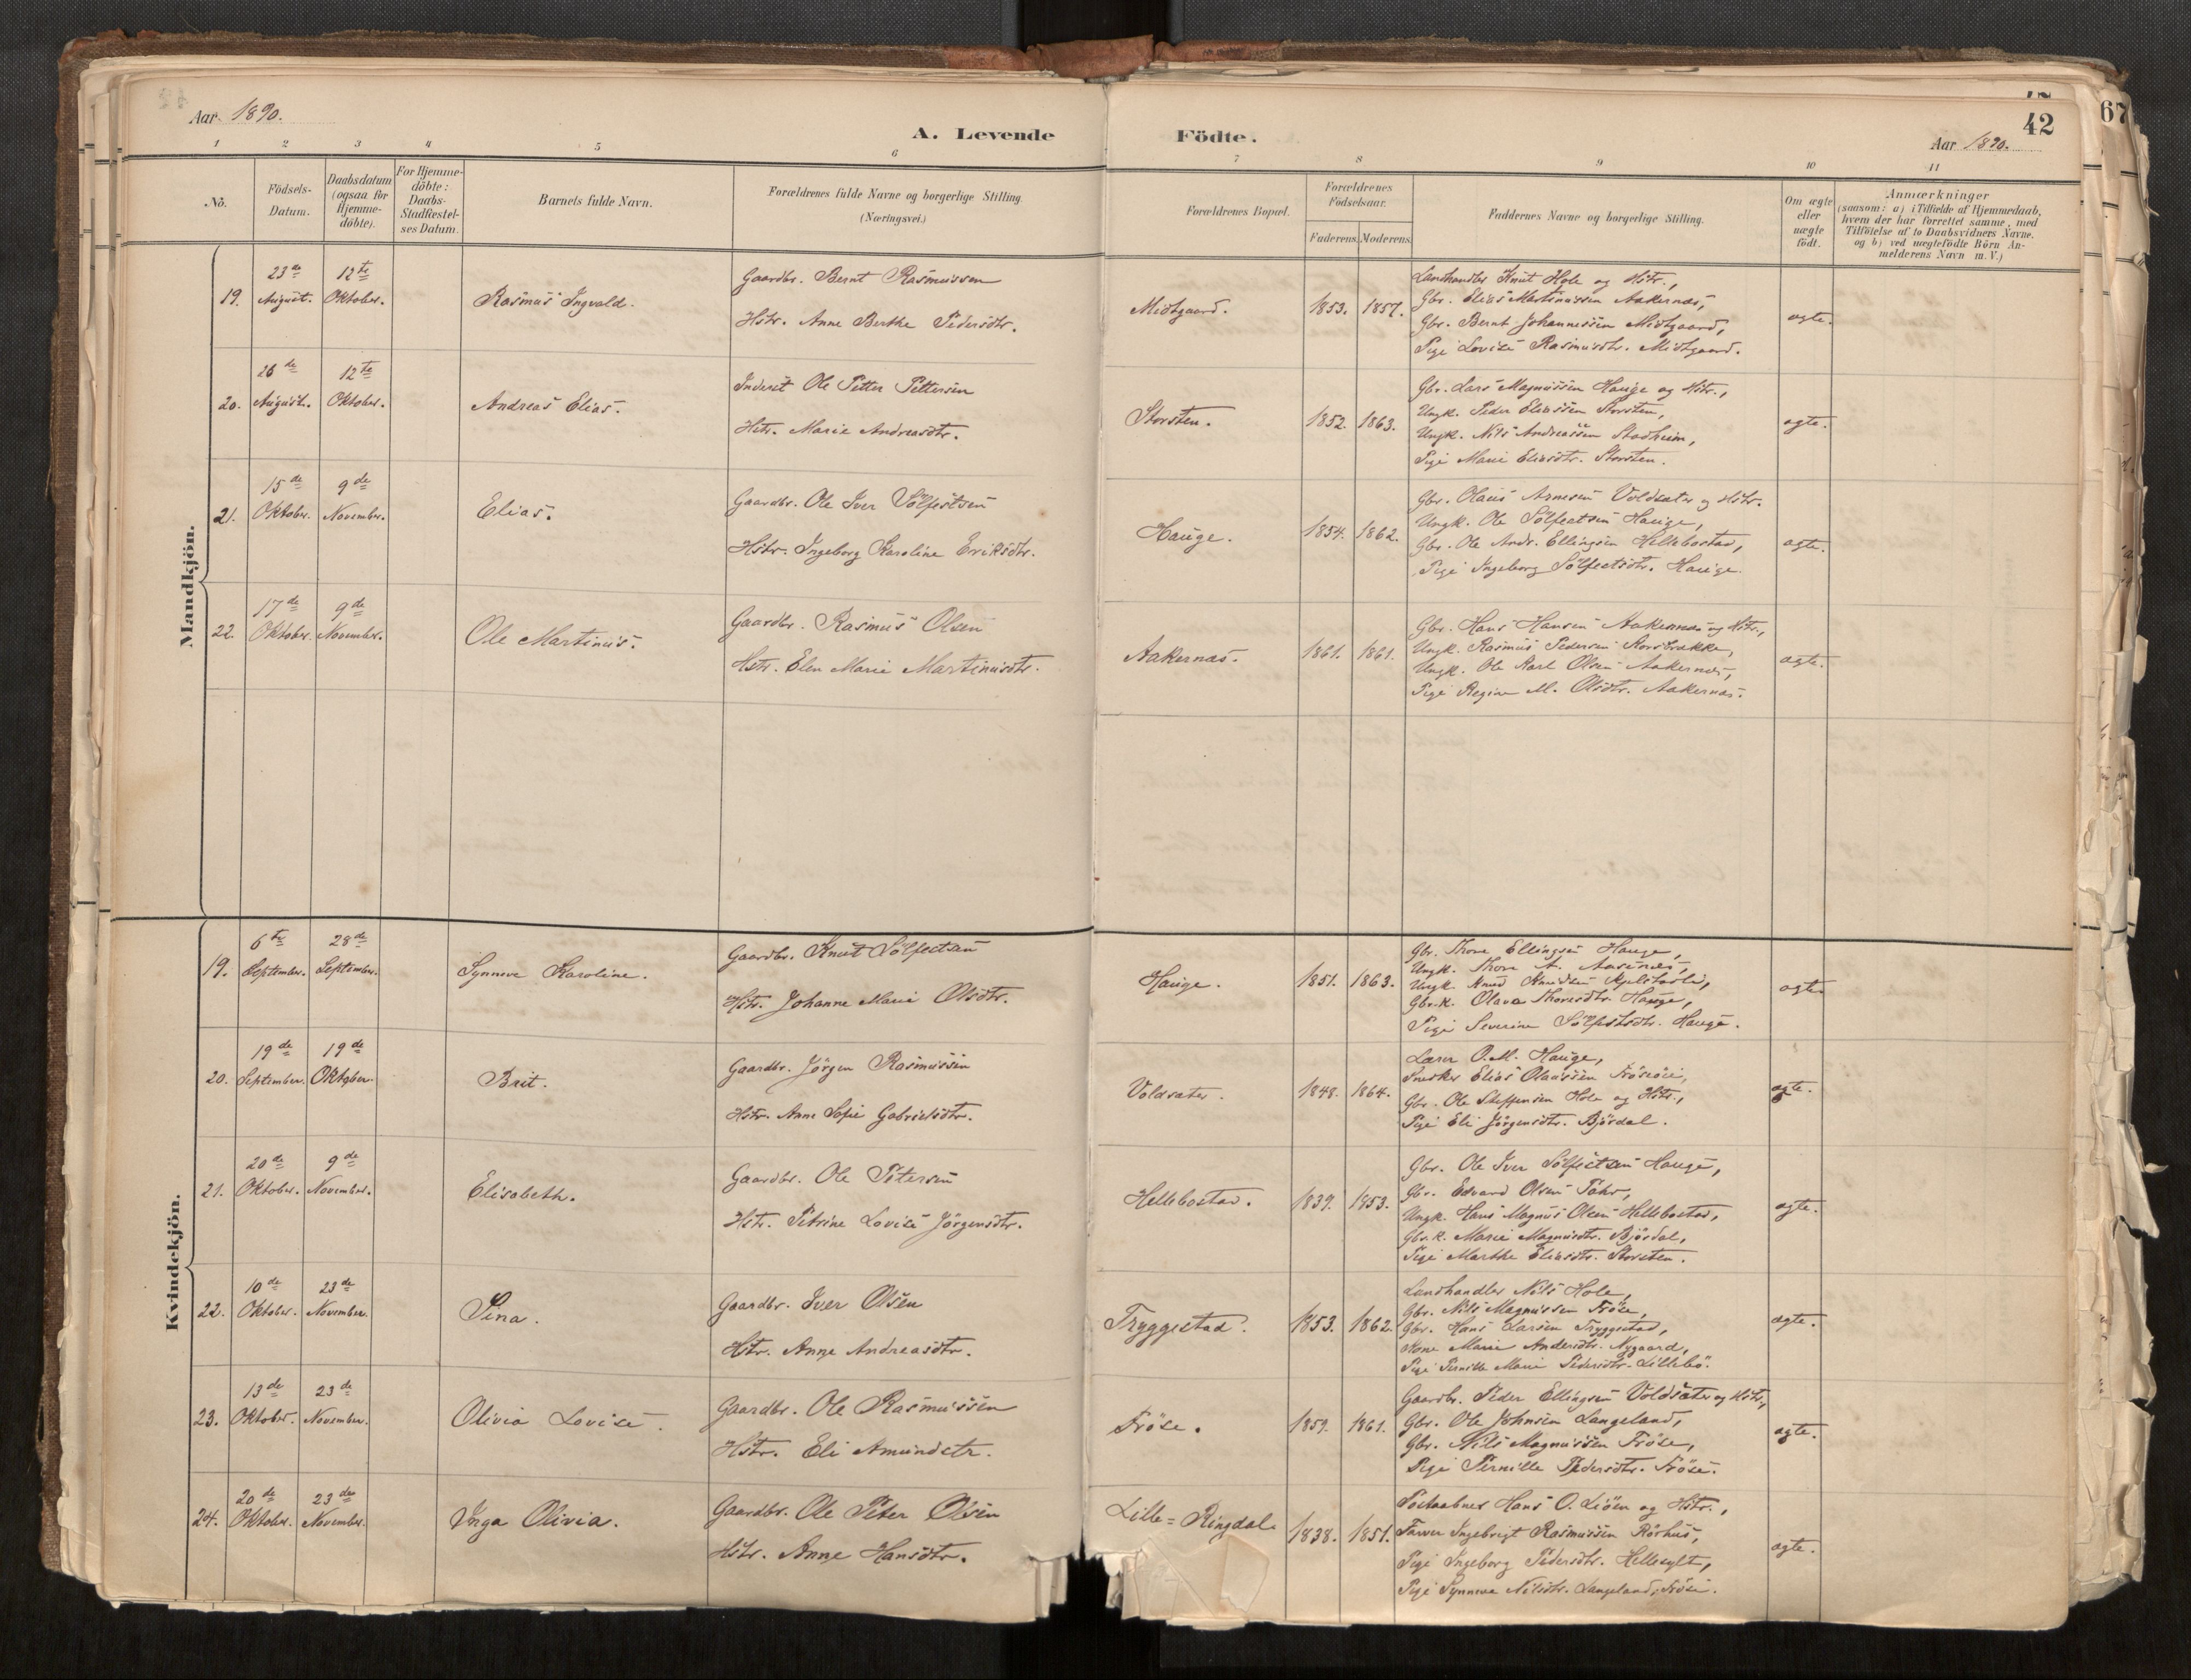 Aar 1890.
A. Levende Födte.
42
67
Aar 1890.
1 2 3 4 5 6 7 8 9 10 11
No.
Födsels-Datum.
Daabsdatum (ogsaa for Hjemme-döbte).
For Hjemme-döbte: Daabs-Stadfæstel-ses Datum.
Barnets fulde Navn.
Forældrenes fulde Navne og borgerlige Stilling. (Næringsvei.)
Forældrenes Bopæl.
Forældrenes Födselsaar.
Faderens. Moderens.
Faddernes Navne og borgerlige Stilling.
Om ægte eller uægte födt.
Anmærkninger
(saasom: a) i Tilfælde af Hjemmedaab,
hvem der har forrettet samme, med
Tilföielse af to Daabsvidners Navne.
og b) ved uægtefödte Börn An-
melderens Navn m. V.)
Mandkjön.
19. 23de August. 12te Oktober. Rasmus Ingvald.
Gaardbr. Bernt Rasmussen
Hstr. Anne Berthe Pedersdtr.
Midtgaard. 1853. 1857.
Landhandler Knut Hole og Hstr.,
Gbr. Elias Martinussen Aakernæs,
Gbr. Bernt Johannessen Midtgaard,
Pige Lovise Rasmusdtr. Midtgaard.
ægte.
20. 26de August. 12te Oktober. Andreas Elias.
Inderst Ole Petter Pettersen
Hstr. Marie Andreasdtr.
Storsten. 1852. 1863.
Gbr. Lars Magnussen Hauge og Hstr.,
Ungk. Peder Eliassen Storsten,
Ungk. Nils Andreassen Stadheim,
Pige Marie Eliasdtr. Storsten.
ægte.
21. 15de Oktober. 9de November. Elias.
Gaardbr. Ole Iver Sölfestsen
Hstr. Ingeborg Karoline Eriksdtr.
Hauge. 1854. 1862.
Gbr. Olaus Arnesen Voldsæter og Hstr.
Ungk. Ole Sölfestsen Hauge,
Gbr. Ole Andr. Ellingsen Hellebostad,
Pige Ingeborg Sölfestsdtr. Hauge.
ægte.
22. 17de Oktober. 9de November. Ole Martinus.
Gaardbr. Rasmus Olsen
Hstr. Elen Marie Martinusdtr.
Aakernæs. 1861. 1861.
Gbr. Hans Hansen Aakernæs og Hstr.,
Ungk. Rasmus Pedersen Korsbrække,
Ungk. Ole Karl Olsen Aakernæs,
Pige Regine M. Olsdtr. Aakernæs.
ægte.
Kvindekjön.
19. 6te September. 28de September. Synneve Karoline.
Gaardbr. Knut Sölfestsen
Hstr. Johanne Marie Olsdtr.
Hauge. 1851. 1863.
Gbr. Thore Ellingsen Hauge,
Ungk. Thore A. Aasenæs,
Ungk. Knud Knudsen Kjelstadli,
Gbr.k. Olava Thoresdtr. Hauge,
Pige Severine Sölfestsdtr. Hauge.
ægte.
20. 19de September. 19de Oktober. Brit.
Gaardbr. Jörgen Rasmussen
Hstr. Anne Sofie Gabrielsdtr.
Voldsæter. 1848. 1864.
Lærer O. M. Hauge,
Snedker Elias Olaussen
Gbr. Ole Steffensen Hole og Hstr.,
Pige Eli Jörgensdtr. Björdal.
ægte.
21. 20de Oktober. 9de November. Elisabeth.
Gaardbr. Ole Petersen
Hstr. Petrine Lovise Jörgensdtr.
Hellebostad. 1839. 1853.
Gbr. Ole Iver Sölfestsen Hauge,
Gbr. Edvard Olsen
Ungk. Hans Magnus Olsen Hellebostad,
Gbr.k. Marie Magnusdtr. Björdal,
Pige Marthe Eliasdtr. Storsten.
ægte.
22. 10de Oktober. 23de November. Sina.
Gaardbr. Iver Olsen
Hstr. Anne Andreasdtr.
Tryggestad. 1853. 1862.
Landhandler Nils Hole,
Gbr. Nils Magnussen Fröse,
Gbr. Hans Larsen Tryggestad,
Kone Marie Andersdtr. Nygaard,
Pige Pernille Marie Pedersdtr. Lillebö.
ægte.
23. 13de Oktober. 23de November. Olivia Lovise.
Gaardbr. Ole Rasmussen
Hstr. Eli Amundstr.
Fröse. 1859. 1861.
Gaardbr. Peder Ellingsen Voldsæter og Hstr.,
Gbr. Ole Johnsen Langeland,
Gbr. Nils Magnussen Fröse,
Pige Pernille Pedersdtr. Fröse.
ægte.
24. 20de Oktober. 23de November. Inga Olivia.
Gaardbr. Ole Peter Olsen
Hstr. Anne Hansdtr.
Lille-Ringdal. 1838. 1851.
Postaabner Hans O. Liöen og Hstr.,
Farver Ingebrigt Rasmussen Rörhus,
Pige Ingeborg Pedersdtr. Hellesylt,
Pige Synneve Nilsdtr. Langeland, Fröse.
ægte.